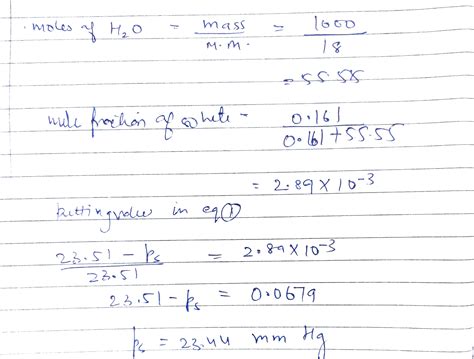 moles of H2O = mass / M.M. = 1000 / 18
= 55.55
mole fraction of solute = 0.161 / 0.161 + 55.55
= 2.89 × 10-3
putting values in eq ①
23.51 - ps / 23.51 = 2.89 × 10-3
23.51 - ps = 0.0679
ps = 23.44 mm Hg